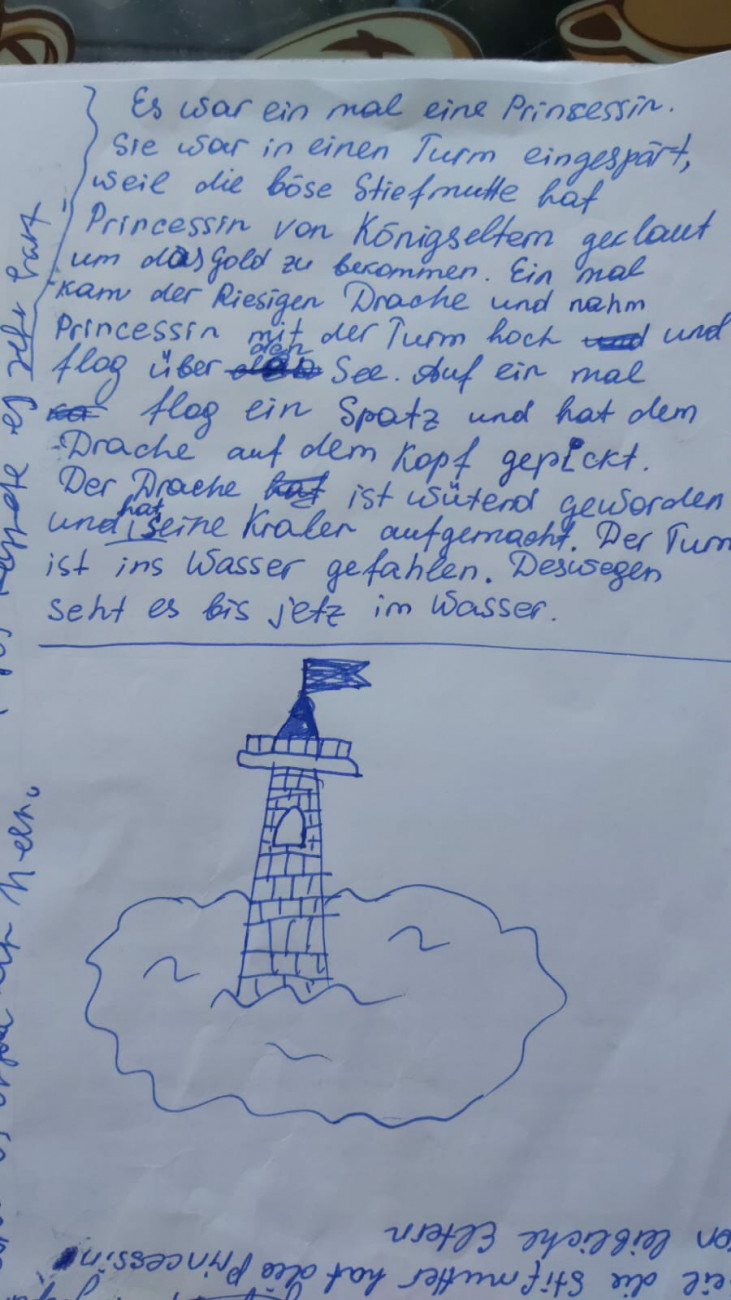 Es war ein mal eine Prinsessin.
Sie war in einen Turm eingespärt,
weil die böse Stiefmutte hat
Princessin von Königseltern geclaut
um das Gold zu bekommen. Ein mal
kam der Riesigen Drache und nahm
Princessin mit der Turm hoch und und
flog über den See. Auf ein mal
flog ein Spatz und hat dem
Drache auf dem Kopf gepickt.
Der Drache hat ist wütend geworden
und hat seine Kraler aufgemacht. Der Turm
ist ins Wasser gefahlen. Deswegen
seht es bis jetz im Wasser.
sehr hart
die Stifmutter hat die Princessin
leibliche Eltern